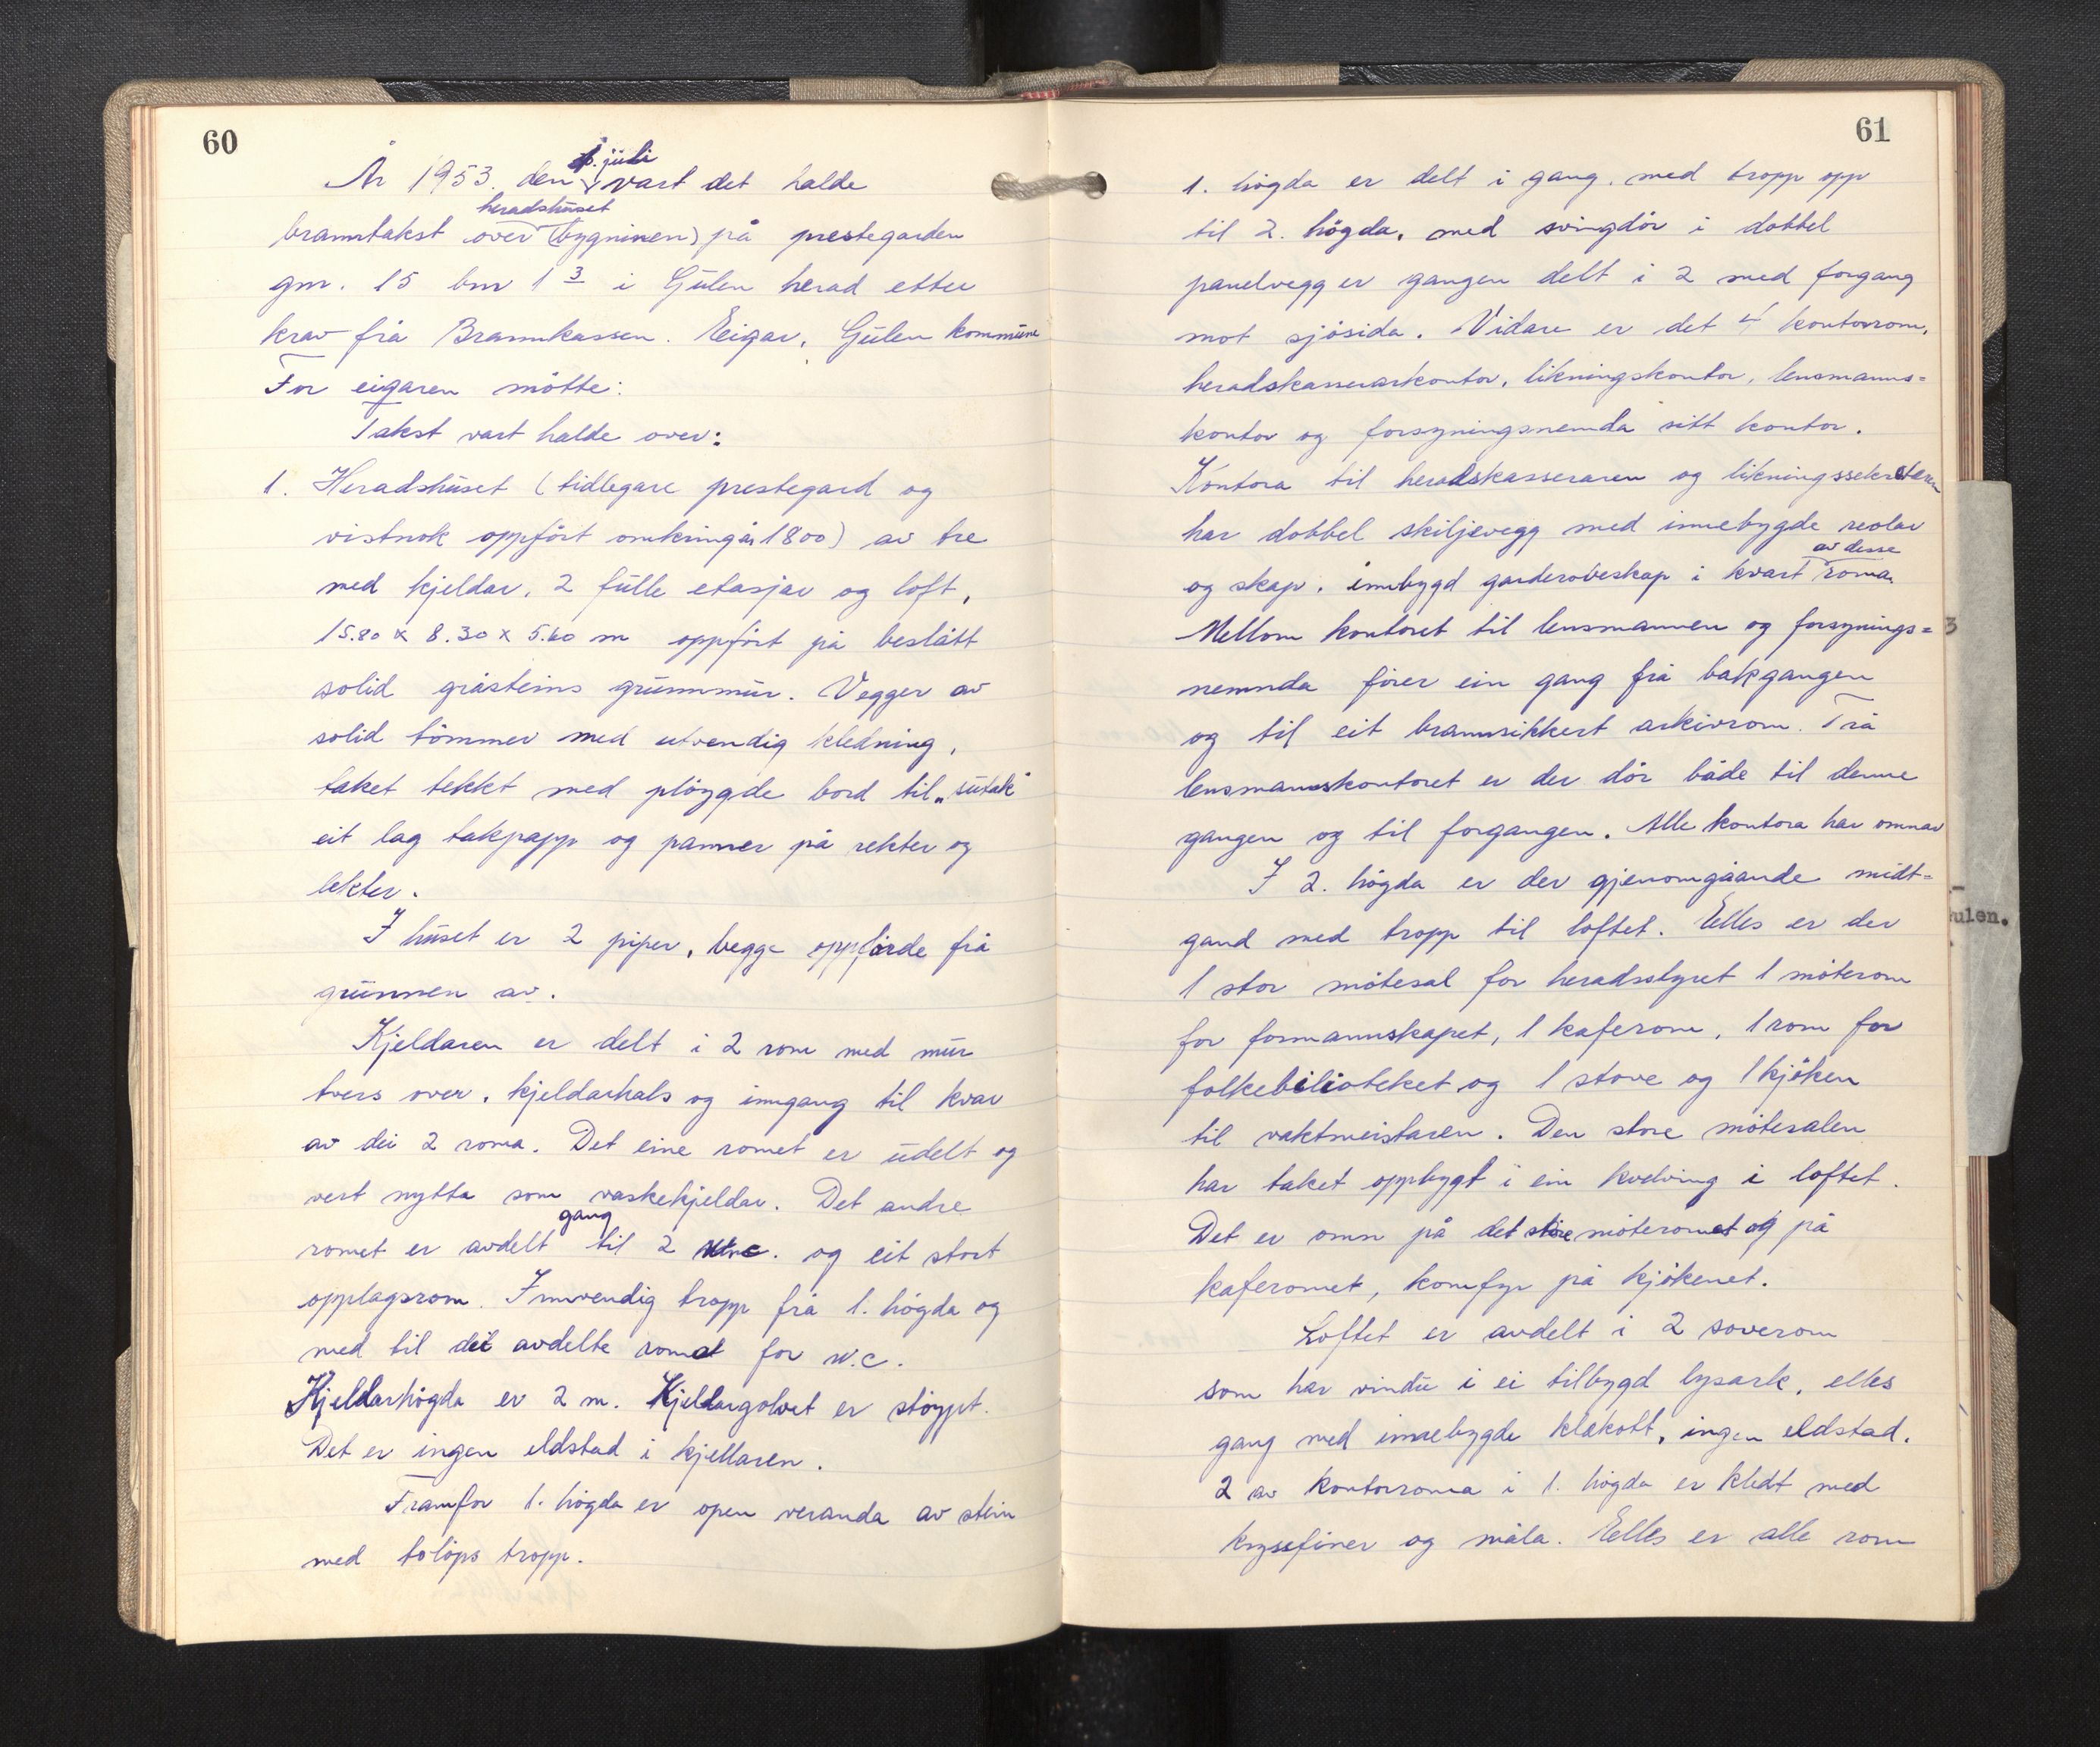 60
År 1953 den juli vart det halde
heradshuset
branntakst over (bygninen) på prestegarden
gnr. 15 bnr 1 3 i Gulen herad etter
krav frå Brannkassen. Eigar, Gulen kommune
For eigaren møtte:
Takst vart halde over:
1. Heradshuset (tidlegare prestegard og
vistnok oppført omkring år 1800) av tre
med kjeldar, 2 fulle etasjar og loft,
15.80 x 8.30 x 5.60 m oppført på beslått
solid gråsteins grunnmur. Vegger av
solid tømmer med utvendig kledning,
taket tekkt med pløygde bord til „sutak"
eit lag takpapp og panner på rekter og
lekter.
I huset er 2 piper, begge oppførde frå
grunnen av.
Kjeldaren er delt i 2 rom med mur
tvers over, kjeldarhals og inngang til kvar
av dei 2 roma. Det eine romet er udelt og
vert nytta som vaskekjeldar. Det andre
gang
romet er avdelt til 2 w.c. og eit stort
opplagsrom. Innvendig tropp frå 1. høgda og
ned til det avdelte romet for w.c.
Kjeldarhøgda er 2 m. Kjeldargolvet er støypt.
Det er ingen eldstad i kjellaren.
Framfor 1. høgda er open veranda av stein
med toløps tropp.
61
1. høgda er delt i gang, med tropp opp
til 2. høgda, med svingdør i dobbel
panelvegg er gangen delt i 2 med forgang
mot sjøsida. Vidare er det 4 kontorrom,
heradskasserarkontor, likningskontor, lensmanns=
kontor og forsyningsnemda sitt kontor.
Kontora til heradskasseraren og likningssekretæren
har dobbel skiljevegg med innebygde reolar
av desse
og skap, innbygd garderobeskap i kvart roma.
Mellom kontoret til lensmannen og forsynings=
nemnda fører ein gang frå bakgangen
og til eit brannsikkert arkivrom. Frå
lensmannskontoret er der dør både til denne
gangen og til forgangen. Alle kontora har omnar
I 2. høgda er der gjenomgåande midt=
gand med tropp til loftet. Elles er der
1 stor møtesal for heradsstyret 1 møterom
for formannskapet, 1 kaferom, 1 rom for
folkebilioteket og 1 stove og 1 kjøken
til vaktmeistaren. Den store møtesalen
har taket oppbygt i ein kvelving i loftet.
Det er omn på det store møteromet og på
kaferomet, komfyr på kjøkenet.
Loftet er avdelt i 2 soverom
som har vindu i ei tilbygd lysark, elles
gang med innebygde klekott, ingen eldstad.
2 av kontorroma i 1. høgda er kledt med
krysfiner og måla. Elles er alle rom
3
ulen.